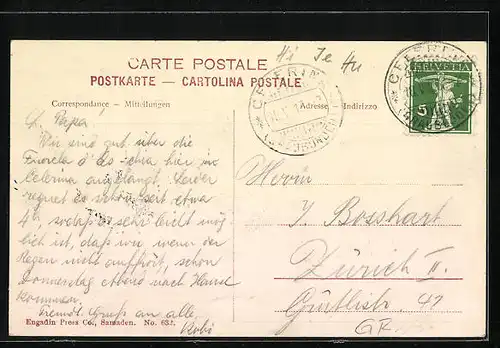 Hi Te Hu
CARTE POSTALE
POSTKARTE — CARTOLINA POSTALE
Correspondance - Mitteilungen
Adresse - Indirizzo
CELERINA
(GRAUBÜNDEN)
CELERINA
(GRAUBÜNDEN)
HELVETIA
5
L. Papa!
Wir sind gut über die
Fuorcla d'Eschia hier in
Celerina angelangt. Leider
regnet es schon seit etwa
4h, sodass es sehr leicht mög-
lich ist, dass wir, wenn der
Regen nicht aufhört, schon
Donnerstag Abend nach Hause
kommen.
Freundl. Gruss an alle,
Robi
Herrn
J. Bosshart
Zürich II.
Gütlistr. 42
GR.
Engadin Press Co., Samaden. No. 632.